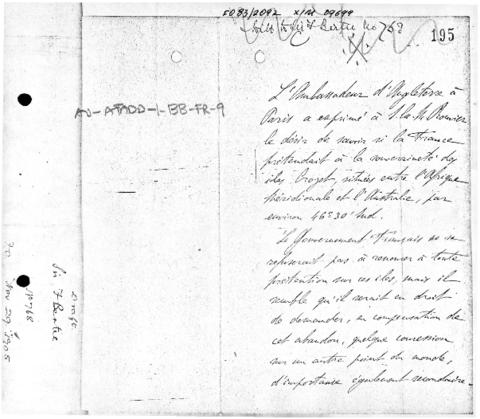 5083/2092 X/M 09699
Sir F. Bertie No 768
195
AU-ATADD-1-BB-FR-9
L'Ambassadeur d'Angleterre à
Paris a exprimé à
le désir de savoir si la France
prétendait à la souveraineté des
îles Crozet, situées entre l'Afrique
Méridionale et l'Australie, par
environ 46° 30' Sud.
Le Gouvernement Français ne se
refuserait pas à renoncer à toute
prétention sur ces îles, mais il
semble qu'il serait en droit
de demander, en compensation de
cet abandon, quelque concession
sur un autre point du monde,
d'importance également secondaire
Draft
Sir F Bertie
No 768
Nov 29 1905